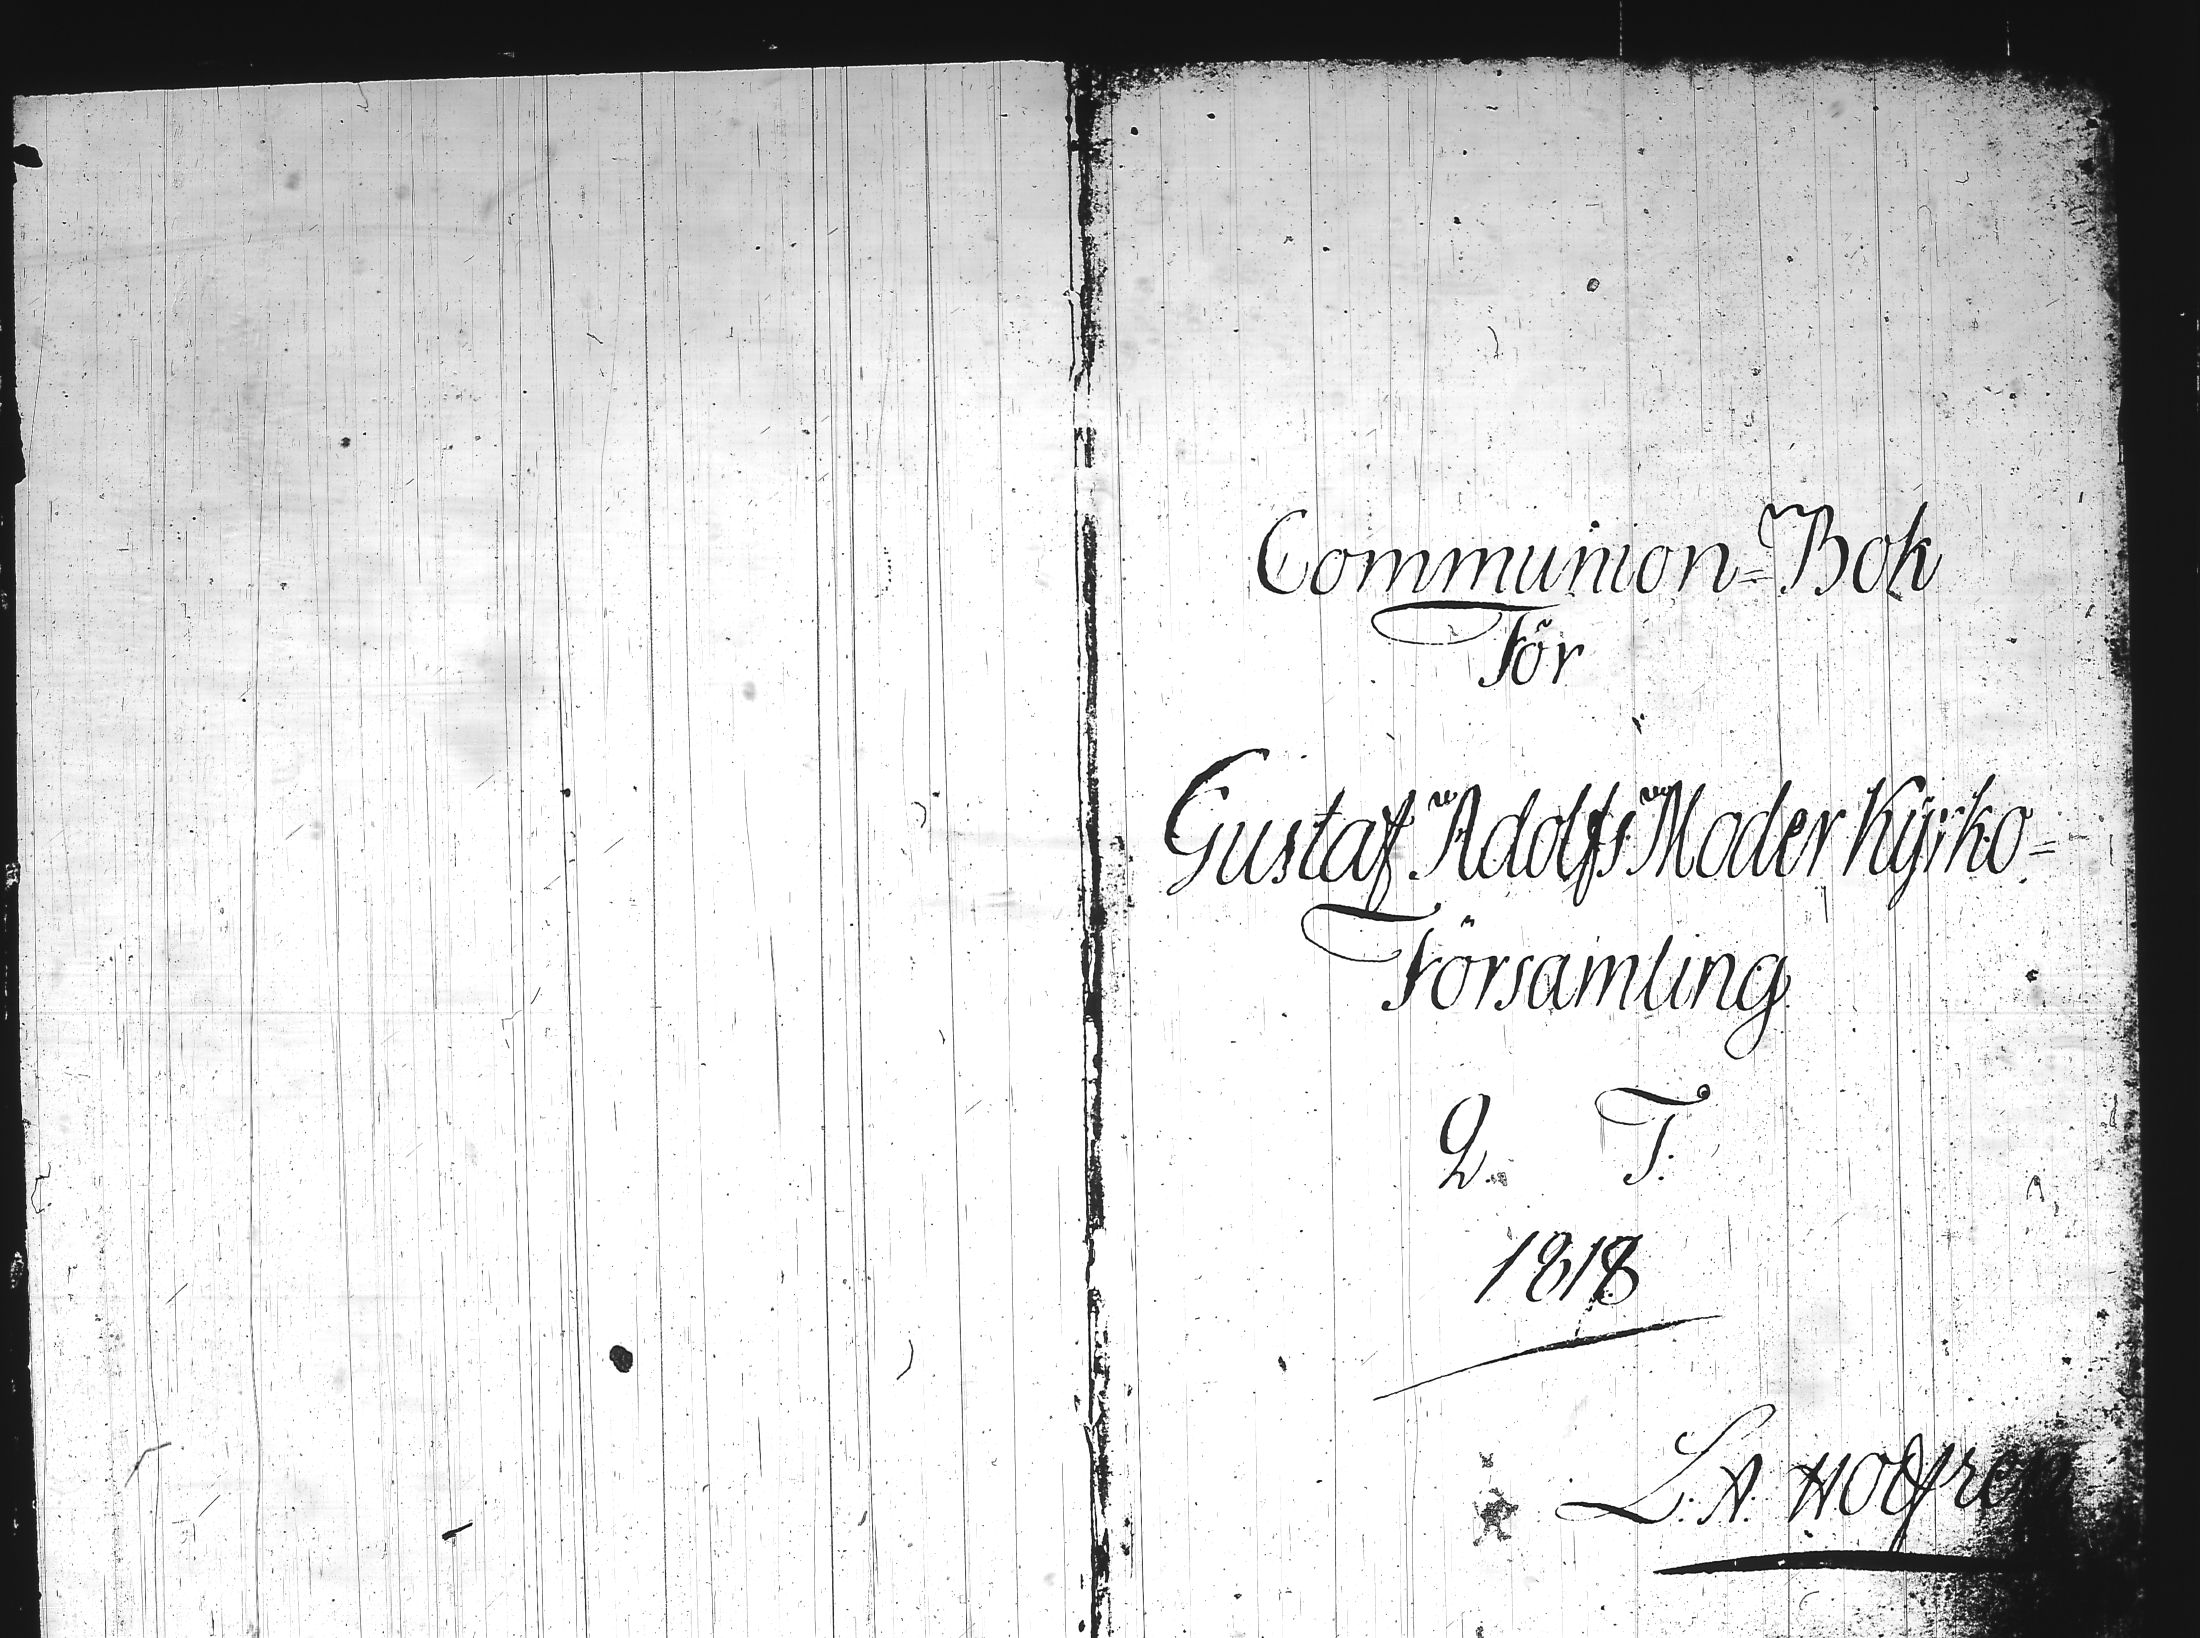 Communion=Bok
För
Gustaf Adolfs Moder Kyrko=
Församling
2. T.
1818
L. A.